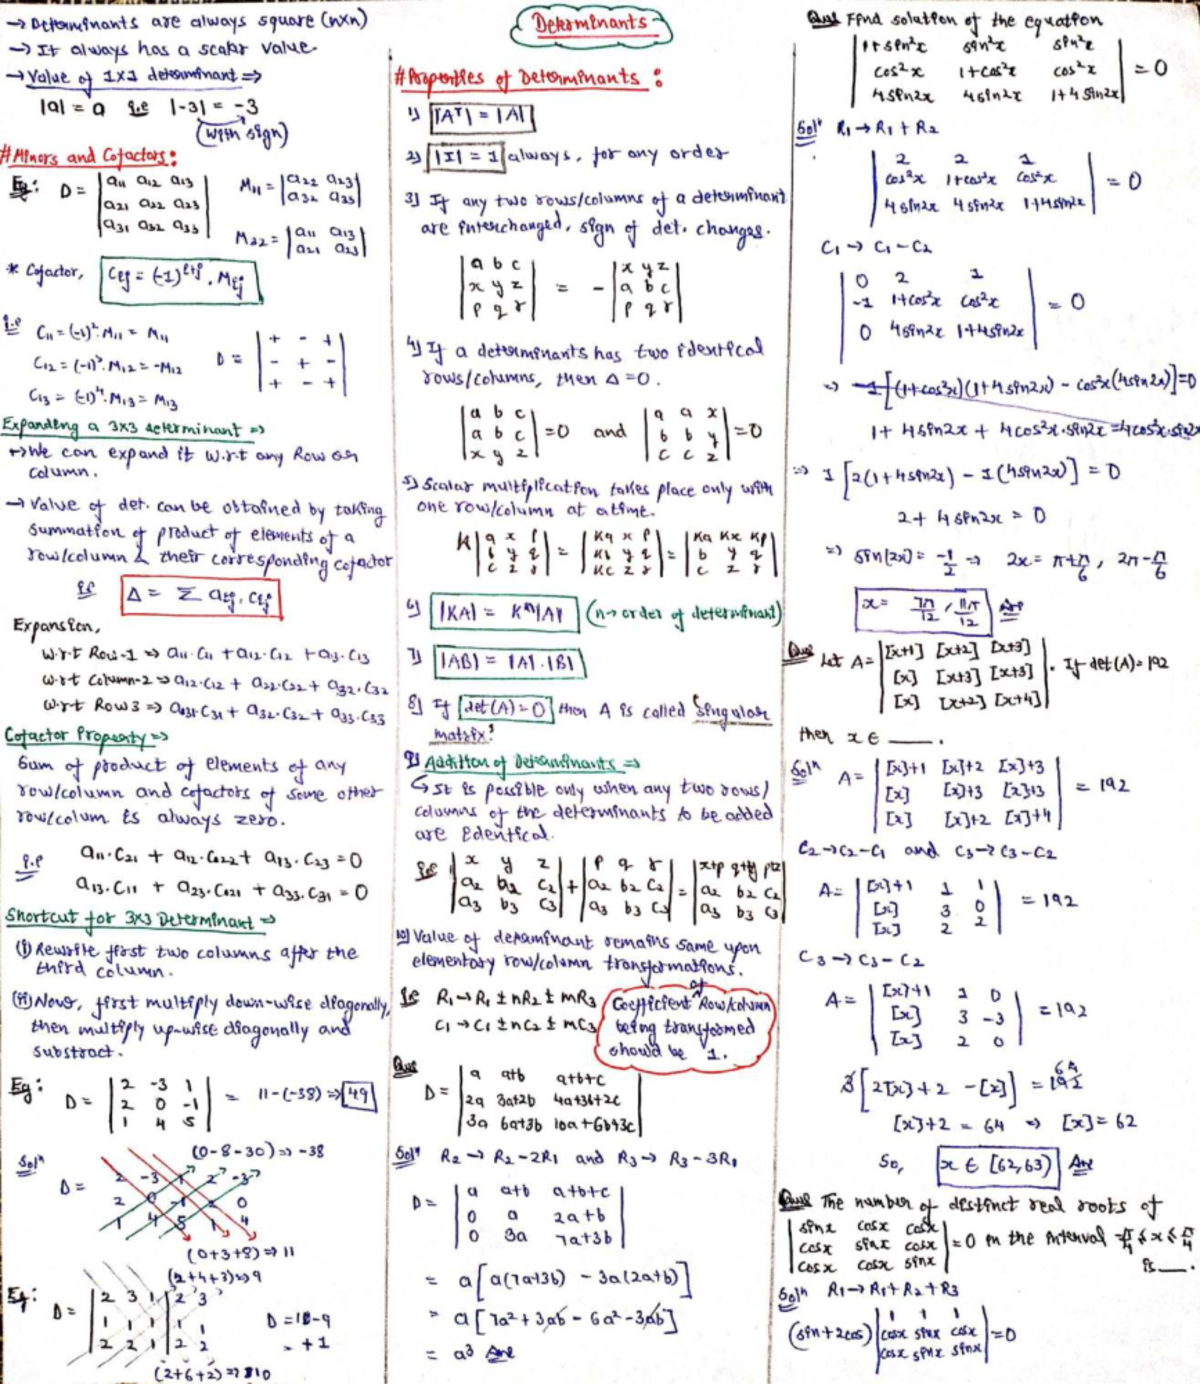 Determinants
→ Determinants are always square (n×n)
→ It always has a scalar value.
→ Value of 1×1 determinant ⇒
|a| = a i.e |-3| = -3
(with sign)
# Minors and Cofactors:
Eg: D = |a11 a12 a13|
|a21 a22 a23|
|a31 a32 a33|
M11 = |a22 a23|
|a32 a33|
M32 = |a11 a13|
|a21 a23|
* Cofactor, Cij = (-1)^i+j . Mij
i.e C11 = (-1)². M11 = M11
C12 = (-1)³. M12 = -M12
C13 = (-1)⁴. M13 = M13
D = |+ - +|
|- + -|
|+ - +|
Expanding a 3×3 determinant ⇒
→ We can expand it w.r.t any Row or
column.
→ Value of det. can be obtained by taking
summation of product of elements of a
row/column & their corresponding cofactor
i.e Δ = Σ aij . cij
Expansion,
w.r.t Row-1 ⇒ a11.C11 + a12.C12 + a13.C13
w.r.t column-2 ⇒ a12.C12 + a22.C22 + a32.C32
w.r.t Row 3 ⇒ a31.C31 + a32.C32 + a33.C33
Cofactor Property ⇒
Sum of product of elements of any
row/column and cofactors of some other
row/colum is always zero.
i.e a11.C21 + a12.C22 + a13.C23 = 0
a13.C11 + a23.C21 + a33.C31 = 0
Shortcut for 3×3 Determinant ⇒
(i) Rewrite first two columns after the
third column.
(ii) Now, first multiply down-wise diagonally,
then multiply up-wise diagonally and
substract.
Eg: D = |2 -3 1|
|2 0 -1|
|1 4 5|
= 11-(-38) ⇒ 49
Solⁿ (0-8-30) ⇒ -38
D = 2 -3 1 2 -3
2 0 -1 2 0
1 4 5 1 4
(0+3+8) ⇒ 11
(2+4+3) ⇒ 9
Eg: D = |2 3 1| 2 3
|1 1 1| 1 1
|2 2 1| 2 2
D = 10-9
= +1
(2+6+2) ⇒ 10
# Properties of Determinants:
1) |Aᵀ| = |A|
2) |I| = 1 always, for any order
3) If any two rows/columns of a determinant
are interchanged, sign of det. changes.
|a b c|
|x y z|
|p q r|
= - |x y z|
|a b c|
|p q r|
4) If a determinants has two identical
rows/columns, then Δ=0.
|a b c|
|a b c|
|x y z|
=0 and |a a x|
|b b y|
|c c z|
=0
5) Scalar multiplication takes place only with
one row/column at a time.
K |a x p|
|b y q|
|c z r|
= |Ka x p|
|Kb y q|
|Kc z r|
= |Ka Kx Kp|
|b y q|
|c z r|
6) |KA| = Kⁿ|A| (n→ order of determinant)
7) |AB| = |A|.|B|
8) If det(A)=0 then A is called 'Singular
matrix'
9) Addition of Determinants ⇒
↳ It is possible only when any two rows/
columns of the determinants to be added
are identical.
i.e |x y z|
|a2 b2 c2|
|a3 b3 c3|
+ |p q r|
|a2 b2 c2|
|a3 b3 c3|
= |x+p q+y r+z|
|a2 b2 c2|
|a3 b3 c3|
10) Value of deraminant remains same upon
elementary row/column transformations.
i.e R1→R1 ± nR2 ± mR3
C1→C1 ± nC2 ± mC3
Coefficient of Row/column
being transformed
should be 1.
Que D = |a a+b a+b+c|
|2a 3a+2b 4a+3b+2c|
|3a 6a+3b 10a+6b+3c|
Solⁿ R2→R2-2R1 and R3→R3-3R1
D = |a a+b a+b+c|
|0 a 2a+b|
|0 3a 7a+3b|
= a[a(7a+3b) - 3a(2a+b)]
= a[7a²+3ab - 6a²-3ab]
= a³ Ans
Que Find solution of the equation
|1+sin²x sin²x sin²x|
|cos²x 1+cos²x cos²x|
|4sin2x 4sin2x 1+4sin2x|
= 0
Solⁿ R1→R1+R2
|2 2 1|
|cos²x 1+cos²x cos²x|
|4sin2x 4sin2x 1+4sin2x|
= 0
C1→C1-C2
|0 2 1|
|-1 1+cos²x cos²x|
|0 4sin2x 1+4sin2x|
= 0
⇒ -1[(1+cos²x)(1+4sin2x) - cos²x(4sin2x)]=0
1+4sin2x+4cos²x.sin2x=4cos²x.sin2x
⇒ 1[2(1+4sin2x) - 1(4sin2x)] = 0
2+4sin2x = 0
⇒ sin(2x) = -1/2 ⇒ 2x = π+π/6, 2π-π/6
x = 7π/12, 11π/12 Ans
Que Let A = |[x+1] [x+2] [x+3]|
|[x] [x+3] [x+3]|
|[x] [x+2] [x+4]|
. If det(A)=192
then x ∈ ____.
Solⁿ A = |[x]+1 [x]+2 [x]+3|
|[x] [x]+3 [x]+3|
|[x] [x]+2 [x]+4|
= 192
C2→C2-C1 and C3→C3-C2
A = |[x]+1 1 1|
|[x] 3 0|
|[x] 2 2|
= 192
C3→C3-C2
A = |[x]+1 1 0|
|[x] 3 -3|
|[x] 2 0|
= 192
3[2[x]+2 - [x]] = 192 64
[x]+2 = 64 ⇒ [x] = 62
So, x ∈ [62,63) Ans
Que The number of distinct real roots of
|sinx cosx cosx|
|cosx sinx cosx|
|cosx cosx sinx|
=0 in the interval -π/4 ≤ x ≤ π/4
is ___.
Solⁿ R1→R1+R2+R3
(sin+2cos) |1 1 1|
|cosx sinx cosx|
|cosx sinx sinx|
=0